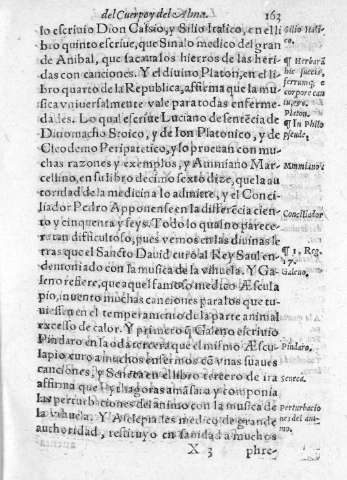 del Cuerpo y del Alma. 163
lo escriuio Dion Cassio, y Silio Italico, en el li
bro quinto escriue, que Sinalo medico del gran
de Anibal, que sacaua los hierros de las heri
das con canciones. Y el diuino Platon, en el li
bro quarto de la Republica, affirma que la mu
sica vniuersalmente vale para todas enferme
dades. Lo qual escriue Luciano de sentēcia de
Dinomacho Stoico, y de Ion Platonico, y de
Cleodemo Peripatetico, y lo prueuan con mu-
chas razones y exemplos, y Ammiano Mar-
cellino, en su libro decimo sexto dize, que la au
toridad de la medicina lo admiete, y el Conci
liador Pedro Apponense en la differēcia cien
to y cinquenta y seys. Todo lo qual no parece-
ra tan difficultoso, pues vemos en las diuinas le
tras que el Sancto Dauid curò al Rey Saul en-
demoniado con la musica de la vihuela. Y Ga-
leno refiere, que aquel famoso medico Æscula
pio, inuento muchas canciones para los que tu-
uiessen en el temperamento de la parte animal
excesso de calor. Y primero q̃ Galeno escriuio
Pindaro en la oda tercera que el mismo Æscu-
lapio curo a muchos enfermos cō vnas suaues
canciones, y Seneca en el libro tercero de ira
affirma que Pythagoras amãsaua y componia
las perturbaciones del animo con la musica de
la vihuela. Y Asclepiades medico de grande
authoridad, restituyo en sanidad a muchos
X 3 phre-
Silio Itali-
co.
¶ Herbarū
hic succis,
ferrumq; e
corpore can
tu &c.
Platon.
¶ In Philo
pseude,
Mmmiano:
Conciliador
¶ 1, Reg.
17.
Galeno,
Pindaro,
Seneca.
Perturbacio
nes del ani-
mo.